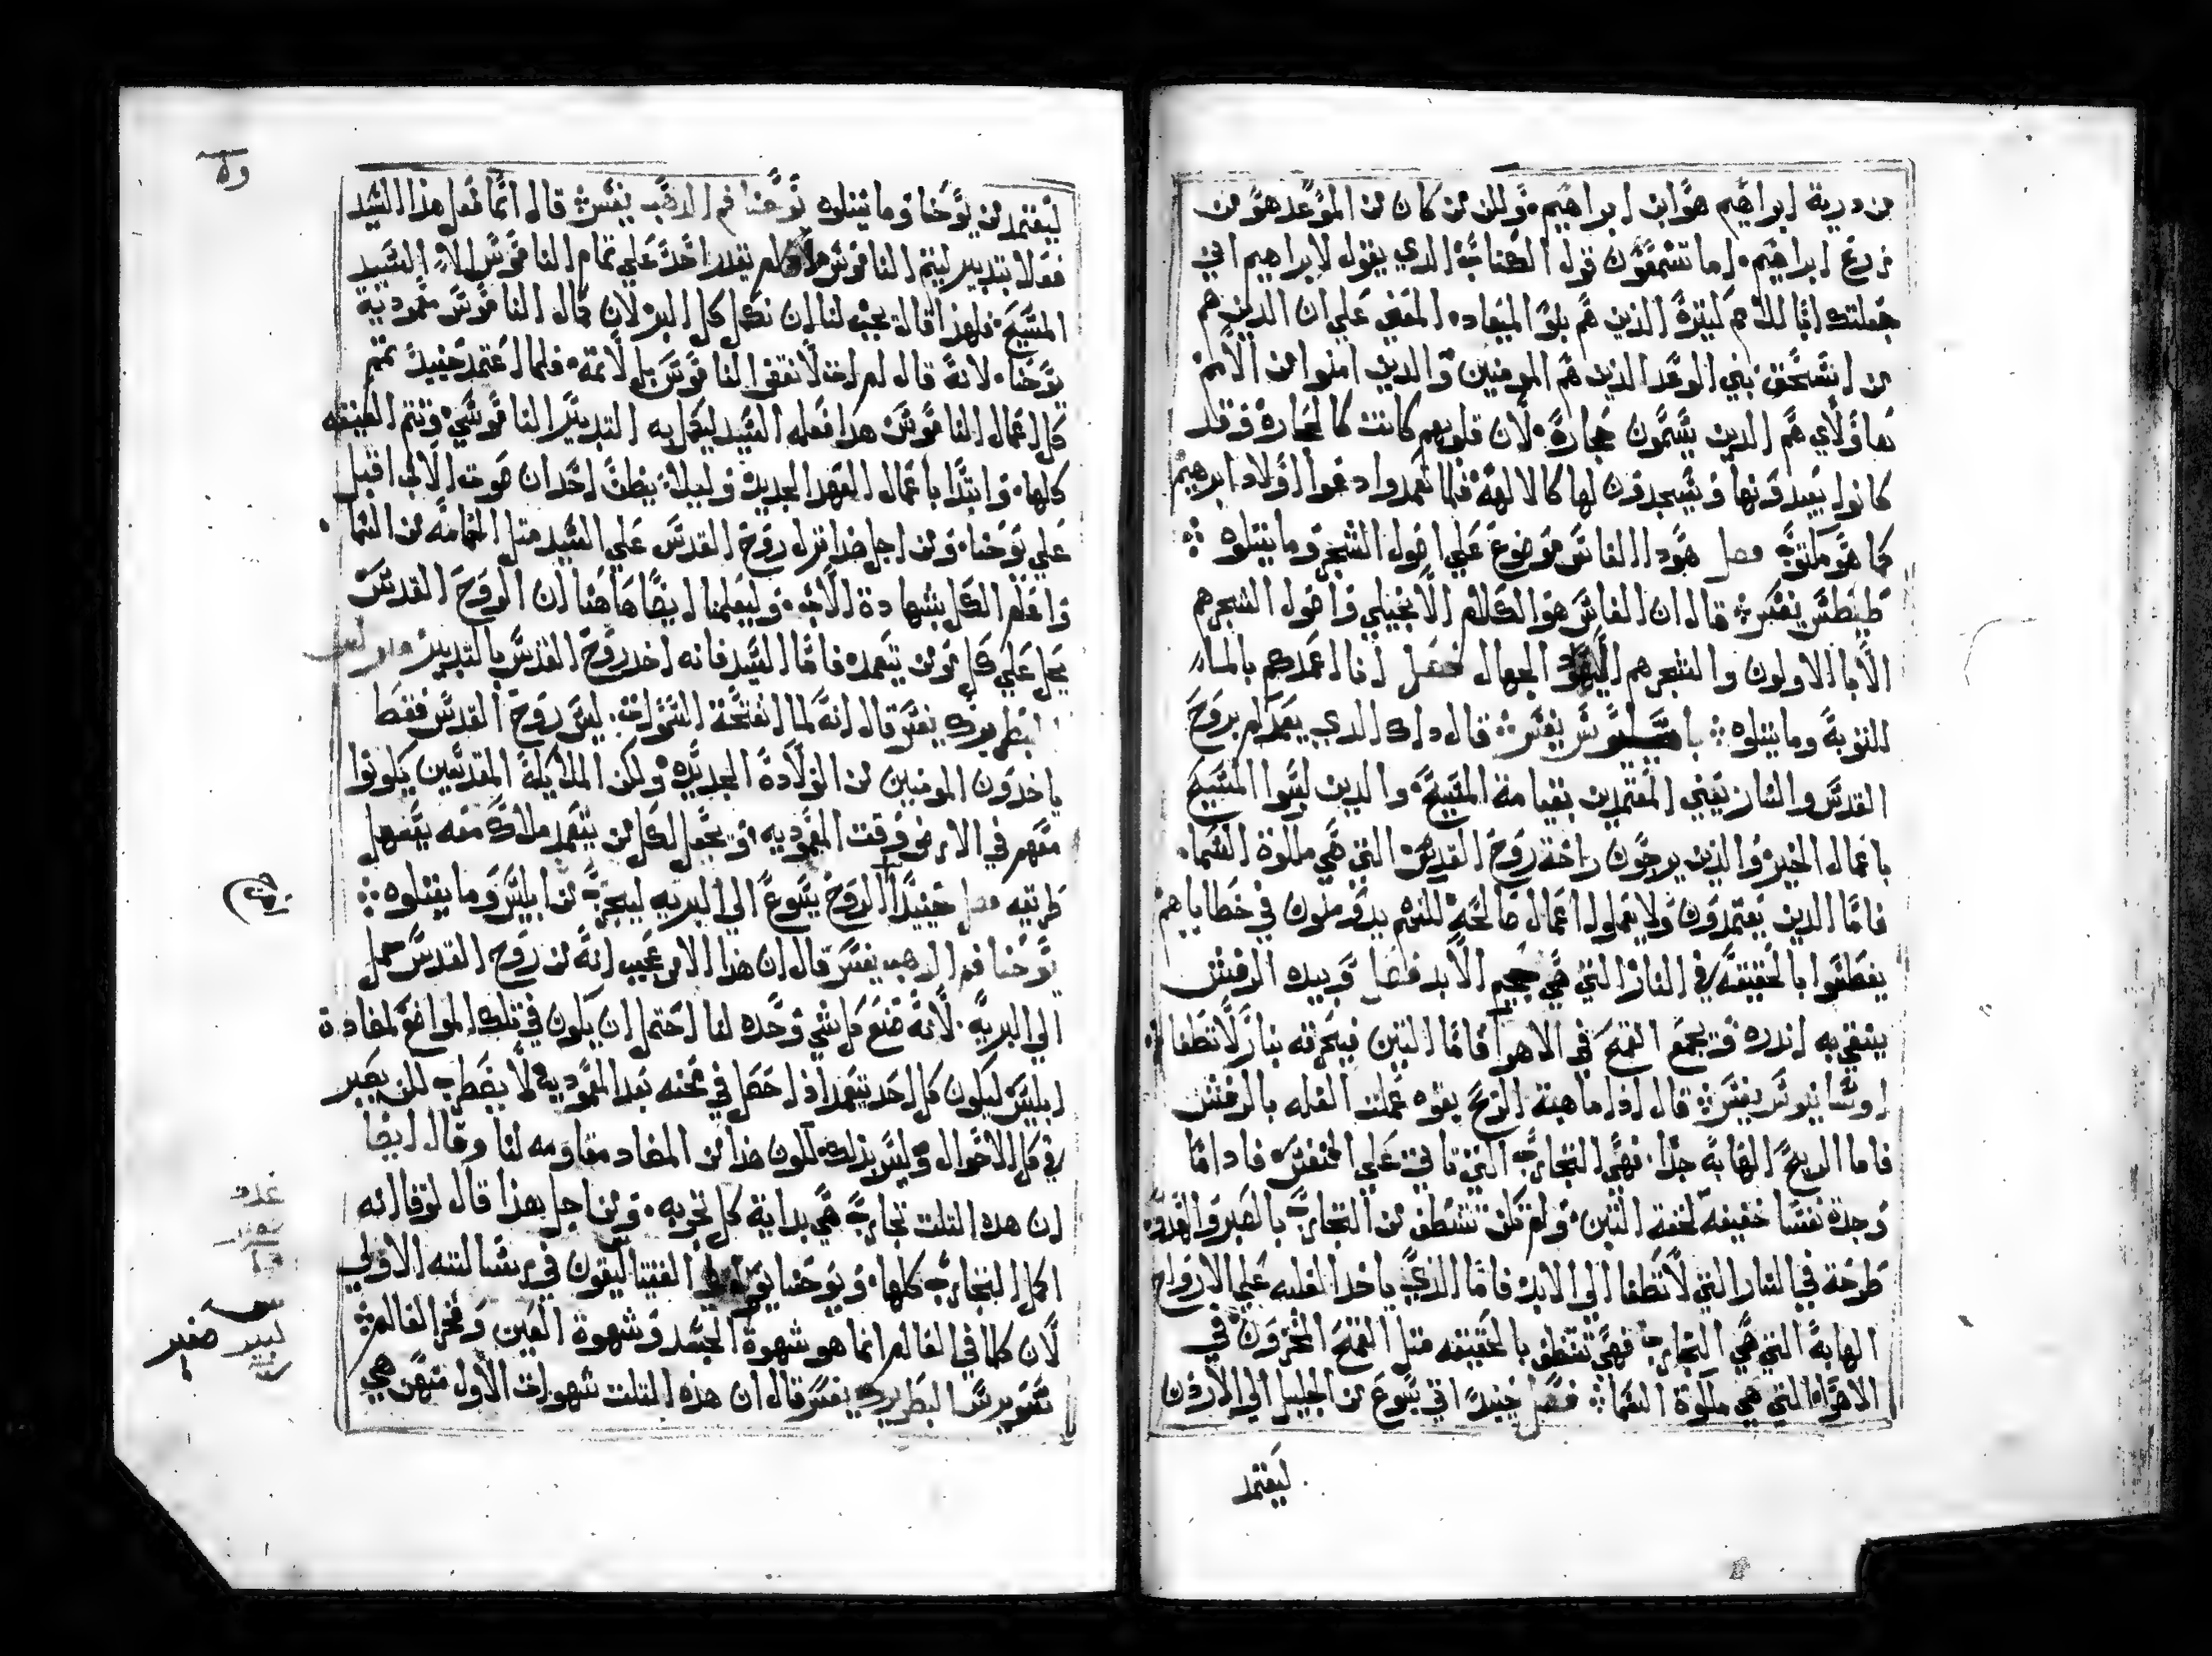 من درية ابراهيم هو ابن ابراهيم. ولكن من كان من الموعد هو من
زرع ابراهيم. اما تسمعون قول الكتاب الدي يقول لابراهيم اني
جعلتك ابا للامم كتيرة الذين هم بلوا الميعاد. المعني علي ان الدين هم
من استحق بني الوعد الذين هم المومنين والدين امنوا من الامم
هاولاي هم الدين يسمون حجارة. لان قلوبهم كانت كالحجارة وقد
كانوا يعبدونها ويسجدون لها كالالهة فلما تعمدوا دعوا اولاد ابرهيم
كما هو مكتوب فصل هودا الفاس موضوع علي اصول الشجر وما يتلوه
طيطس يفسر قال ان الفاس هو الكلام الانجيلي واصول الشجر هم
الابا الاولون والشجر هم اليهود الجهال فصل انا اعمدكم بالما
للتوبة وما يتلوه يفسر قال داك الدي يعمدكم بروح
القدس والنار يعني المعتمدين بقيامة المسيح والدين لبسوا المسيح
باعمال الخير والذين يرجون راحة روح القدس التي هي ملكوة السما.
فاما الدين يعتمدون ولا يعملوا اعمال صالحة لكنهم يدومون في خطاياهم
يغطسوا بالحقيقة في النار التي هي جحيم الابد فصل وبيده الرفش
ينقي به اندره ويجمع القمح في الاهرا فاما التبن فيحرقه بنار لا تطفا
اوسابيوس يفسر قال اذا ما هبة الريح بقوه عملت الغله بالرفش
فاما الريح الهابة جدا. فهي التجارب التي تاتي علي النفس فاداما
وجدة نفسا خفيفه لخفة التبن ولم تكن تنشطف من التجارب بالصبر
طرحة في النار التي لا تطفا الي الابد فاما الذي ياخد الغلبه علي الارواح
الهابة التي هي التجارب فهي تنتظف بالحقيقه متل القمح المخزون في
الاهرا التي هي ملكوة السما فصل حينيد اتي يسوع من الجليل الي الاردن
ليعتمد
ليعتمد من يوحنا وما يتلوه يوحنا فم الدهب يفسر قال انما فعل هذا السيد
فعلا بتدبير ليتم الناموس ولم يقدر احد علي تمام الناموس الا السيد
المسيح. فلهذا قال يجب لنا ان نكمل كل البر لان كمال الناموس معمودية
يوحنا. لانه قال لم ات لانقض الناموس بل لاتمه. فلما اعتمد حينيد تمم
كل اعمال الناموس هدا فعله السيد ليكمل به التدبير الناموسي وتتم الحقيقه
كلها. وابتدا باعمال العهد الجديد وليلا يظن احد ان صوت الاب اقبل
علي يوحنا. ومن اجل هدا نزل روح القدس علي السيد متل الحمامه من السما
واعلم الكل بشهادة الاب. وليعلمنا ايضا هاهنا ان الروح القدس
يحل علي كل مومن يتعمد فاما السيد فانه اخد روح القدس بالتدبير
البطريرك يفسر قال انه لما انفتحة السموات. ليس روح القدس فقط
ياخدون المومنين من الولادة الجديده ولكن الملايكة المقدسين يكونوا
معهم في الارض وقت المعموديه ويجعل لكل من يتعمد ملاك معه يسهل
طريقه فصل حينيدا الروح يسوع الي البريه ليجرب من ابليس وما يتلوه
يوحنا فم الدهب يفسر قال ان هذا الامر عجيب انه من روح القدس حمل
الي البرية. لانه صنع كل شي وحده لنا احتمل ان يكون في تلك المواضع لمضادة
ابليس ليكون كل احد يتعمد اذا حصل في محنه بعد المعموديه لا يضطرب لكن يصبر
في كل الاحوال وليس بذلك لكون هذا من المضاد مقاومه لنا وقال ايضا
ان هده التلت تجارب هي بداية كل تجربه. ومن اجل هذا قال لوقا انه
اكمل التجارب كلها. ويوحنا يقول في رسالته الاولي
لان كلما في العالم انما هو شهوة الجسد وشهوة العين وفخر العالم
سويرس البطريرك يفسر قال ان هذه التلت شهوات الاول منهن هي
صغير